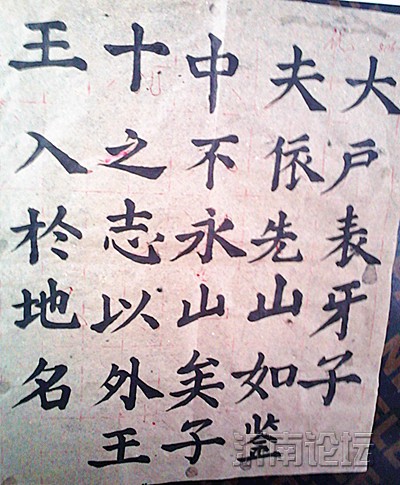 大户表牙子
夫依先山如鉴
中不永山矣子
十之志以外王
王入於地名
济南论坛